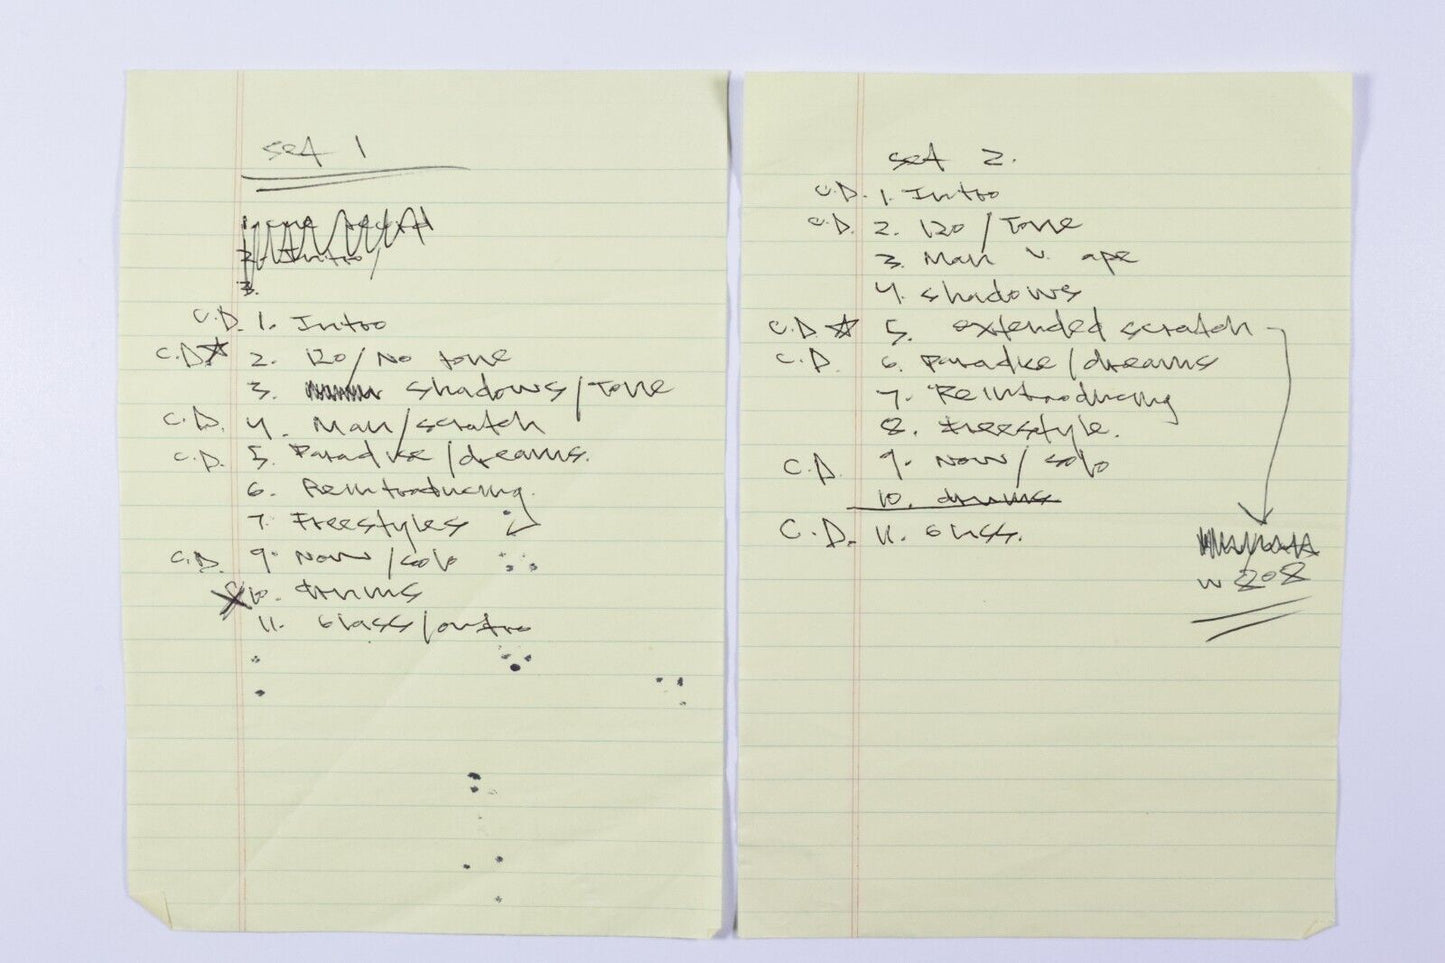 set 1
2. Intro
3.
C.D. 1. Intro
C.D☆ 2. 120/No tone
3. shadows/Tone
C.D. 4. Man/scratch
C.D. 5. Paradise/dreams.
6. Reintroducing.
7. Freestyles
C.D. 9. Now/solo
10. drums
11. Glass/outro
set 2.
C.D. 1. Intro
C.D. 2. 120/Tone
3. Man v. ape
4. shadows
C.D ☆ 5. extended scratch
C.D. 6. Paradise/dreams
7. Reintroducing
8. Freestyle.
C.D. 9. Now/solo
10. drums
C.D. 11. Glass.
w 808